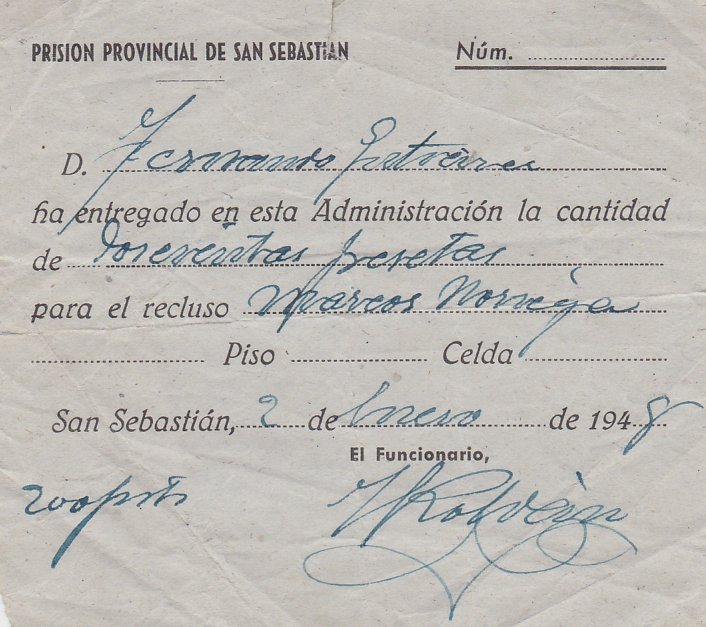 PRISION PROVINCIAL DE SAN SEBASTIAN Núm.
D. Fernando Gutierrez
ha entregado en esta Administración la cantidad
de doscientas pesetas
para el recluso Marcos Noriega
Piso Celda
San Sebastián, 2 de Enero de 1948
El Funcionario,
200 pts